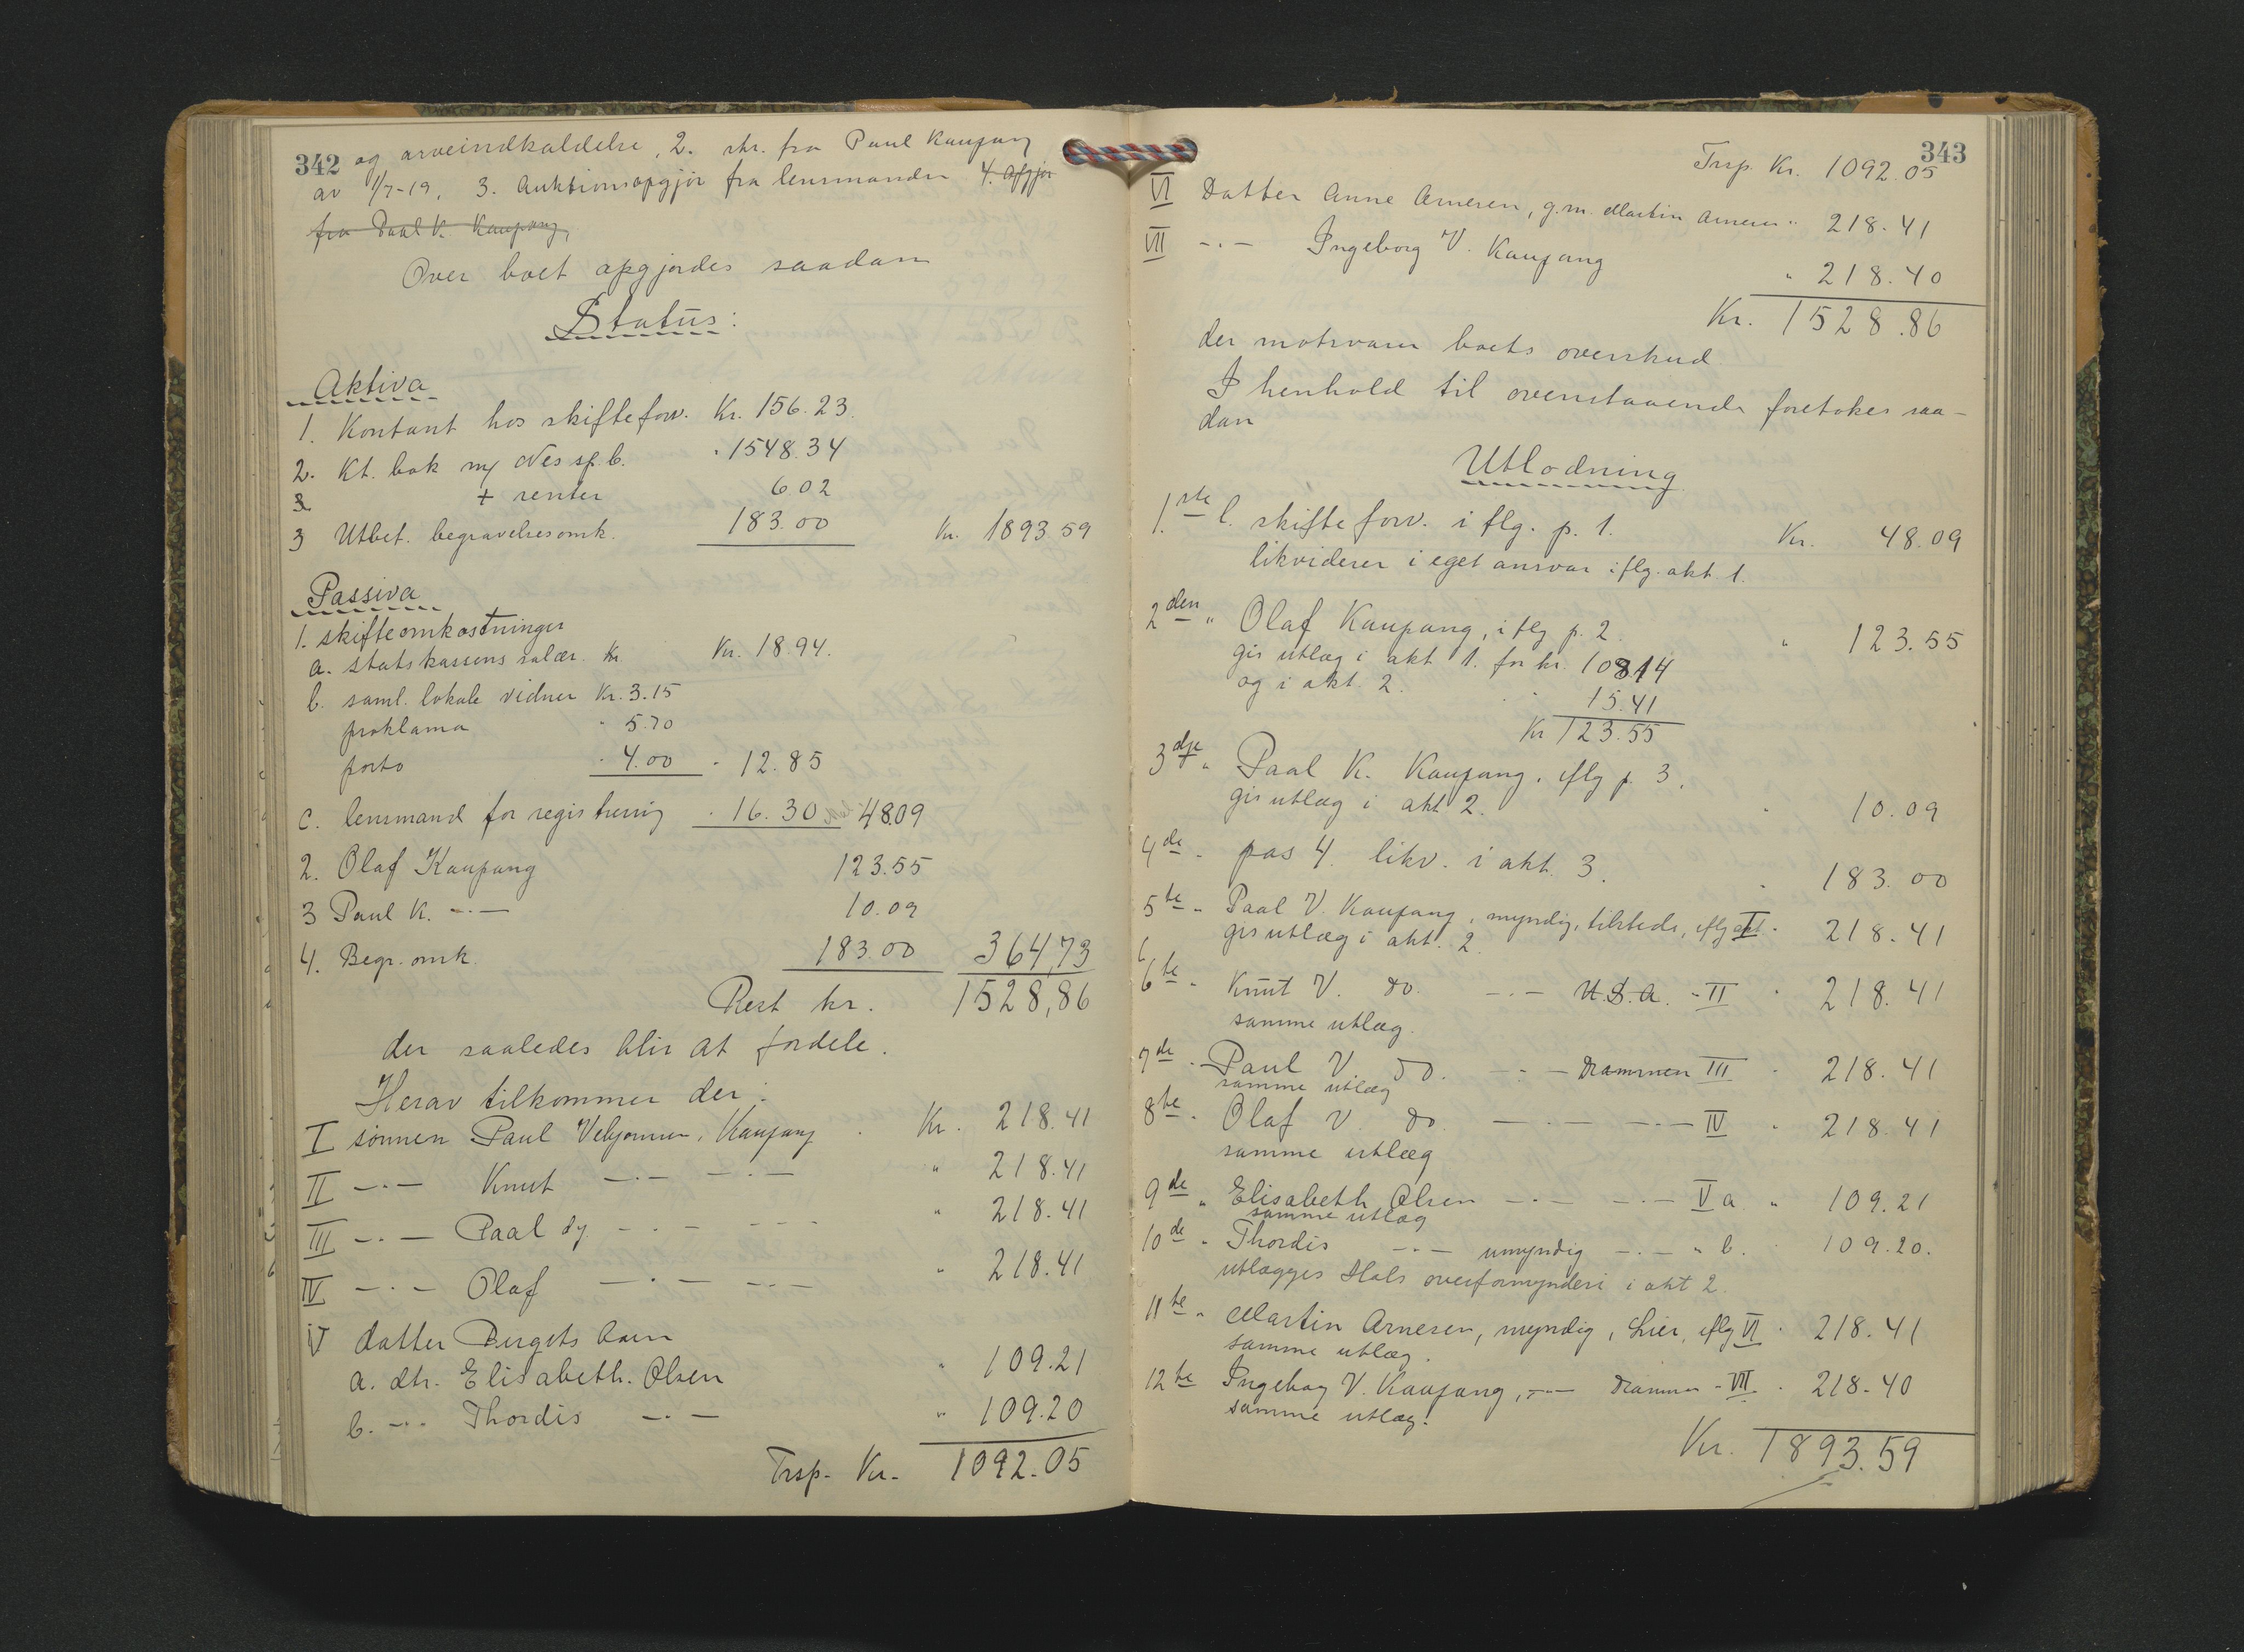 342 og arveindkaldelse, 2. skr. fra Paul Kaupang
av 1/7-19, 3. Auktionsopgjör fra lensmanden 4. Opgjör
fra Paal K. Kaupang,
Over boet opgjordes saadan
Status:
Aktiva
1. Kontant hos skifteforv. Kr. 156.23.
2. Kt. bok m/ Nes sp.b. " 1548.34
3 + renter 6.02
3 Utbet. begravelsesomk. 183.00 Kr. 1893.59
Passiva
1. skifteomkostninger
a. statskassens salær. Kr. Kr. 18.94.
b. saml. lokale vidner Kr. 3.15
proklama " 5.70
porto " 4.00 " 12.85
c. lensmand for registrering " 16.30 48.09
2. Olaf Kaupang 123.55
3 Paul K. -·- 10.09
4. Begr. omk. 183.00 364,73
Rest kr. 1528,86
der saaledes blir at fordele.
Herav tilkommer der:
I sønnen Paul Vebjørnsen, Kaupang Kr. 218.41
II -·- Knut -·- -·- " 218.41
III -·- Paal dy. -·- -·- " 218.41
IV -·- Olaf -·- -·- " 218.41
V datter Birgits barn
a. dtr. Elisabeth Olsen " 109.21
b. -·- Thordis -·- " 109.20
Trsp. Kr. 1092.05
343
Trsp. Kr. 1092.05
VI Datter Anne Arnesen, g.m. Martin Arnesen " 218.41
VII -·- Ingeborg V. Kaupang " 218.40
Kr. 1528.86
der motsvarer boets overskud.
I henhold til ovenstaaende foretokes saa-
dan
Utlodning
1.ste l. skifteforv. iflg. p. 1. Kr. 48.09
likviderer i eget ansvar iflg. akt. 1.
2den " Olaf Kaupang, iflg p. 2. " 123.55
gis utlæg i akt 1. for kr. 108.14
og i akt. 2. " 15.41
Kr 123.55
3dje " Paal K. Kaupang. iflg p. 3.
gis utlæg i akt 2. " 10.09
4de " pas 4. likv. i akt. 3. " 183.00
5te " Paal V. Kaupang, myndig, tilstede, iflg akt. I " 218.41
gis utlæg i akt. 2
6te " Knut V. do. -·- U.S.A. - II " 218.41
samme utlæg.
7de " Paul V. do. -·- Drammen III " 218.41
samme utlæg
8te " Olaf V. do. -·- -·- IV " 218.41
samme utlæg
9de " Elisabeth Olsen -·- -·- V a " 109.21
samme utlæg
10de " Thordis -·- umyndig -·- " b. 109.20.
utlægges Hols overformynderi i akt 2.
11te " Martin Arnesen, myndig, Lier, iflg VI " 218.41
samme utlæg.
12te Ingeborg V. Kaupang, -·- Drammen - VII " 218.40
samme utlæg.
Kr. 1893.59